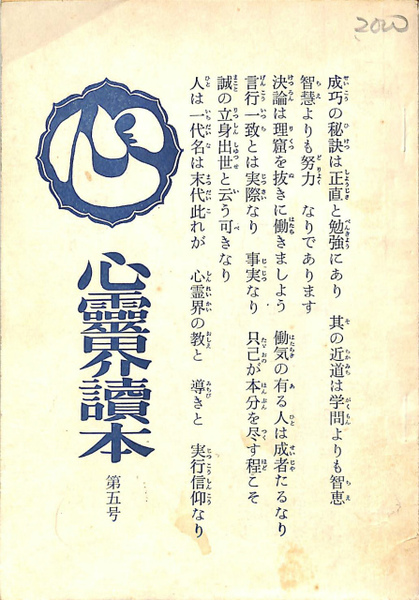 2000
成巧の秘訣は正直と勉強にあり 其の近道は学問よりも智恵
智慧よりも努力 なりであります
決論は理窟を抜きに働きましよう 働気の有る人は成者たるなり
言行一致とは実際なり 事実なり 只己が本分を尽す程こそ
誠の立身出世と云う可きなり
人は一代名は末代此れが 心霊界の教と 導きと 実行信仰なり
心
心靈界讀本
第五号